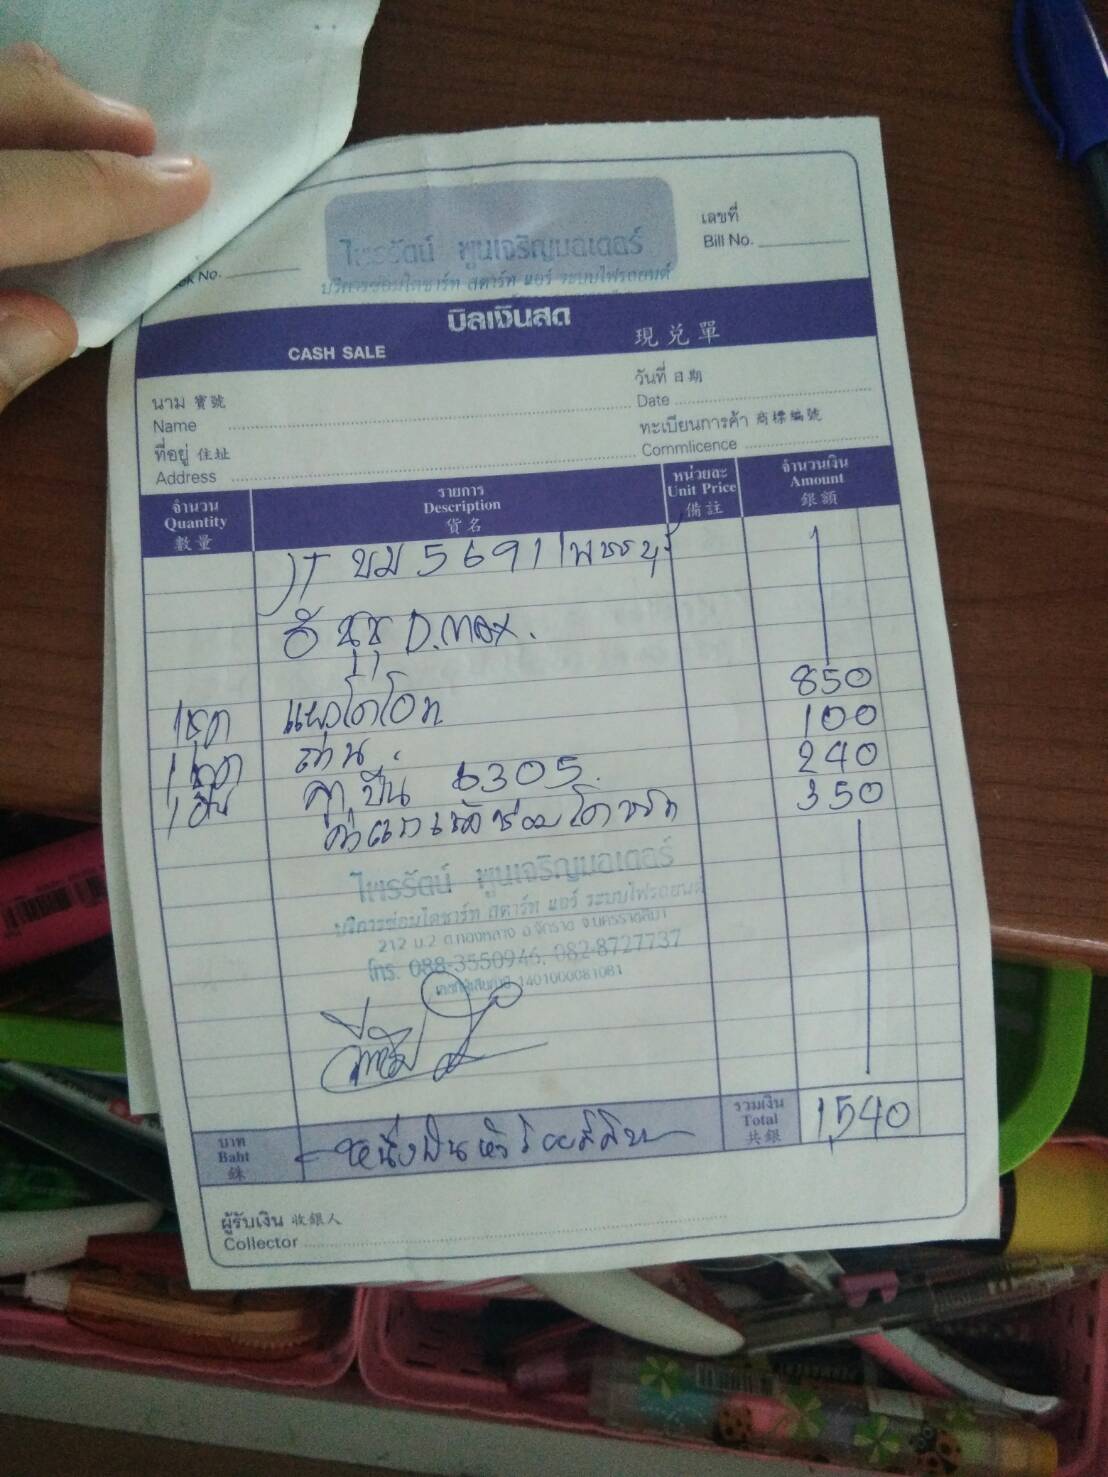 ไพรรัตน์ พูนเจริญมอเตอร์
บริการซ่อมไดชาร์ท สตาร์ท แอร์ ระบบไฟรถยนต์
เลขที่
Bill No.
No.
บิลเงินสด
CASH SALE
現兌單
นาม 寶號
Name
วันที่ 日期
Date
ที่อยู่ 住址
Address
ทะเบียนการค้า 商標編號
Commlicence
จำนวน
Quantity
數量
รายการ
Description
貨名
หน่วยละ
Unit Price
備註
จำนวนเงิน
Amount
銀額
บม 5691
อีซูซุ D.max.
1 ชุด แผงไดโอท 850
1 ชุด ถ่าน. 100
ลูกปืน 6305. 240
350
ไพรรัตน์ พูนเจริญมอเตอร์
บริการซ่อมไดชาร์ท สตาร์ท แอร์ ระบบไฟรถยนต์
212 ม.2 ต.ทองหลาง อ.จักราช จ.นครราชสีมา
โทร. 088-3550946, 082-8727737
1401000081081
บาท
Baht
銖
หนึ่งพันห้าร้อยสี่สิบ
รวมเงิน
Total
共銀
1,540
ผู้รับเงิน 收銀人
Collector